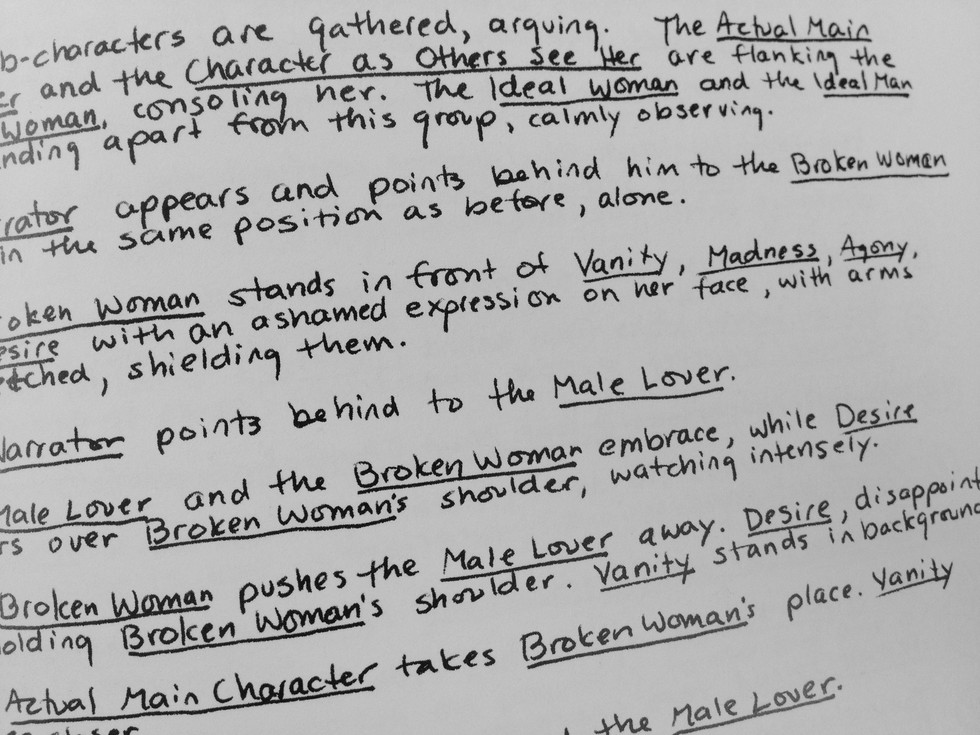 b-characters are gathered, arguing. The Actual Main
er and the Character as Others See Her are flanking the
Woman, consoling her. The Ideal Woman and the Ideal Man
nding apart from this group, calmly observing.
rator appears and points behind him to the Broken Woman
in the same position as before, alone.
oken Woman stands in front of Vanity, Madness, Agony,
esire with an ashamed expression on her face, with arms
etched, shielding them.
Narrator points behind to the Male Lover.
Male Lover and the Broken Woman embrace, while Desire
rs over Broken Woman's shoulder, watching intensely.
Broken Woman pushes the Male Lover away. Desire, disappoint
olding Broken Woman's shoulder. Vanity stands in background
Actual Main Character takes Broken Woman's place. Vanity
the Male Lover.